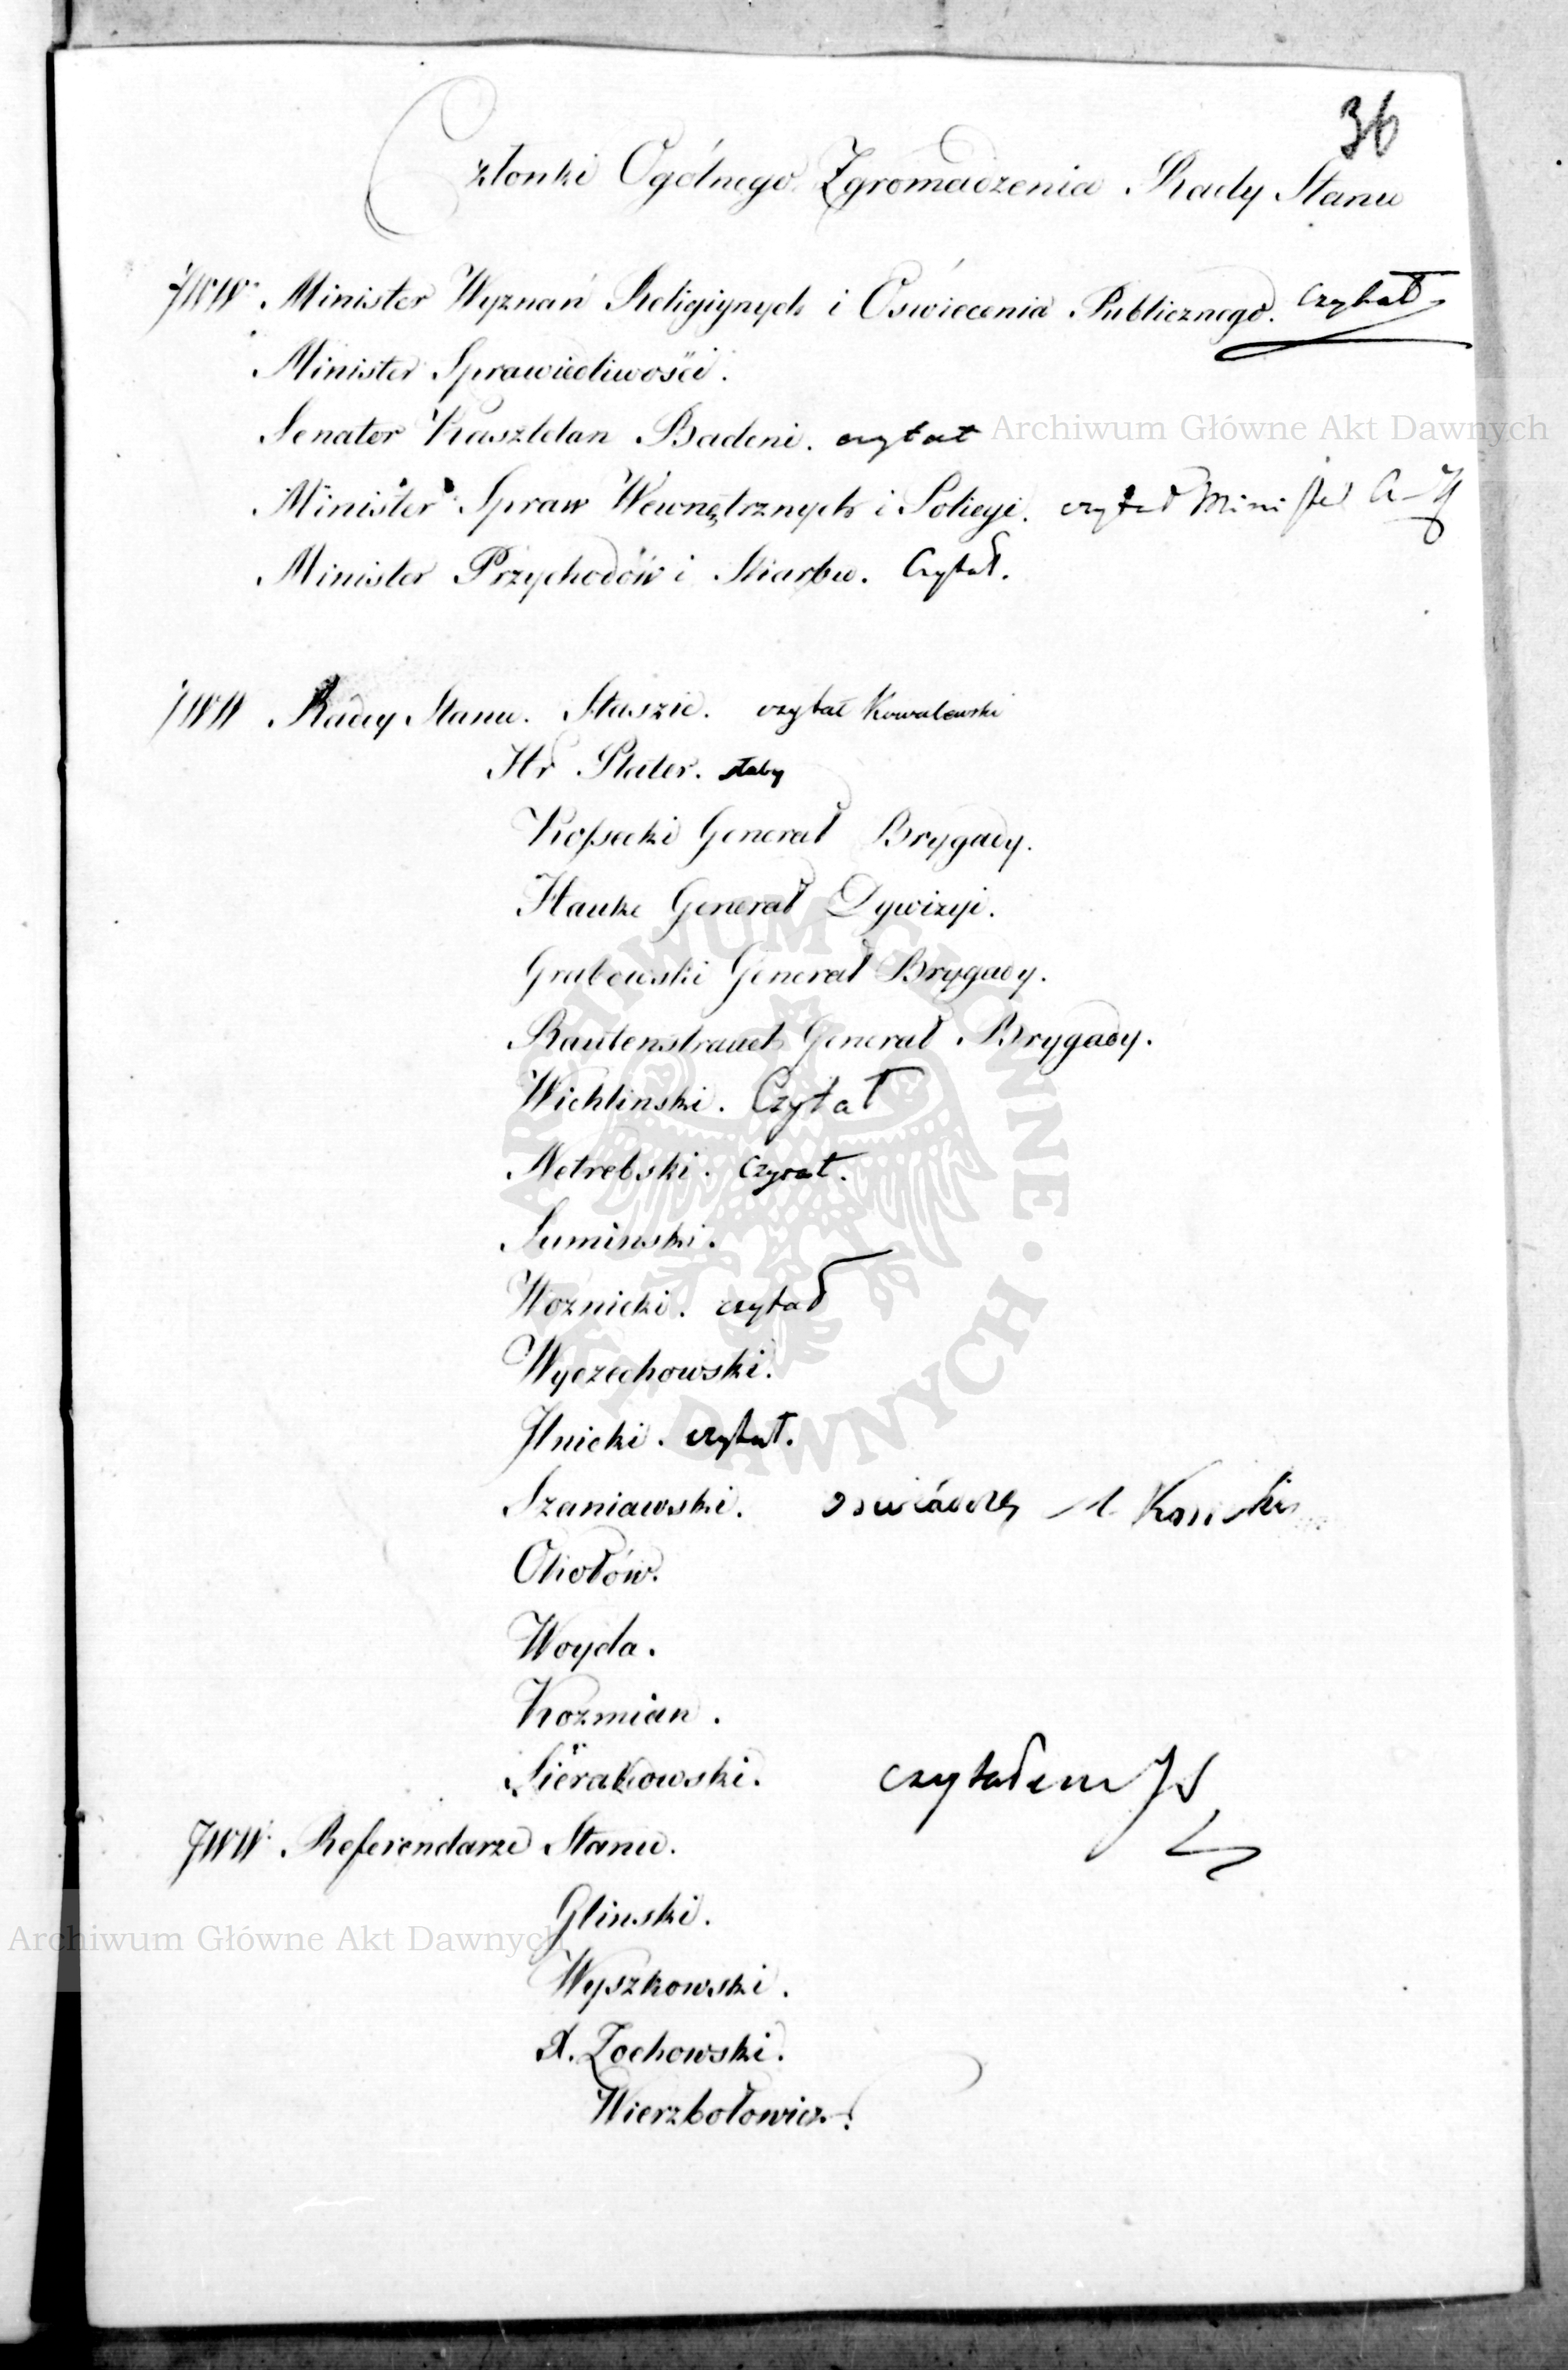 36
Członki Ogólnego Zgromadzenia Rady Stanu
JWW. Minister Wyznań Religiynych i Oświecenia Publicznego. czytał
Minister Sprawiedliwości.
Senator Kasztelan Badeni. czytał
Archiwum Główne Akt Dawnych
Minister Spraw Wewnętrznych i Policyi. czytał Minister
Minister Przychodów i Skarbu. Czytał.
JWW Radcy Stanu. Staszic. czytał Kowalewski
Hr Plater. słaby
Kossecki Generał Brygady.
Hauke Generał Dywizyi.
Grabowski Generał Brygady.
Rautenstrauch Generał Brygady.
Wichlinski. Czytał
Netrebski. czytał.
Suminski.
Woznicki. czytał
Wyczechowski.
Ilnicki. czytał.
Szaniawski.
Okołów.
Woyda.
Kozmian.
Sierakowski. czytałem JS
JWW. Referendarze Stanu.
Glinski.
Archiwum Główne Akt Dawnych
Wyszkowski.
X. Zochowski.
Wierzbołowicz.
ARCHIWUM GŁÓWNE AKT DAWNYCH